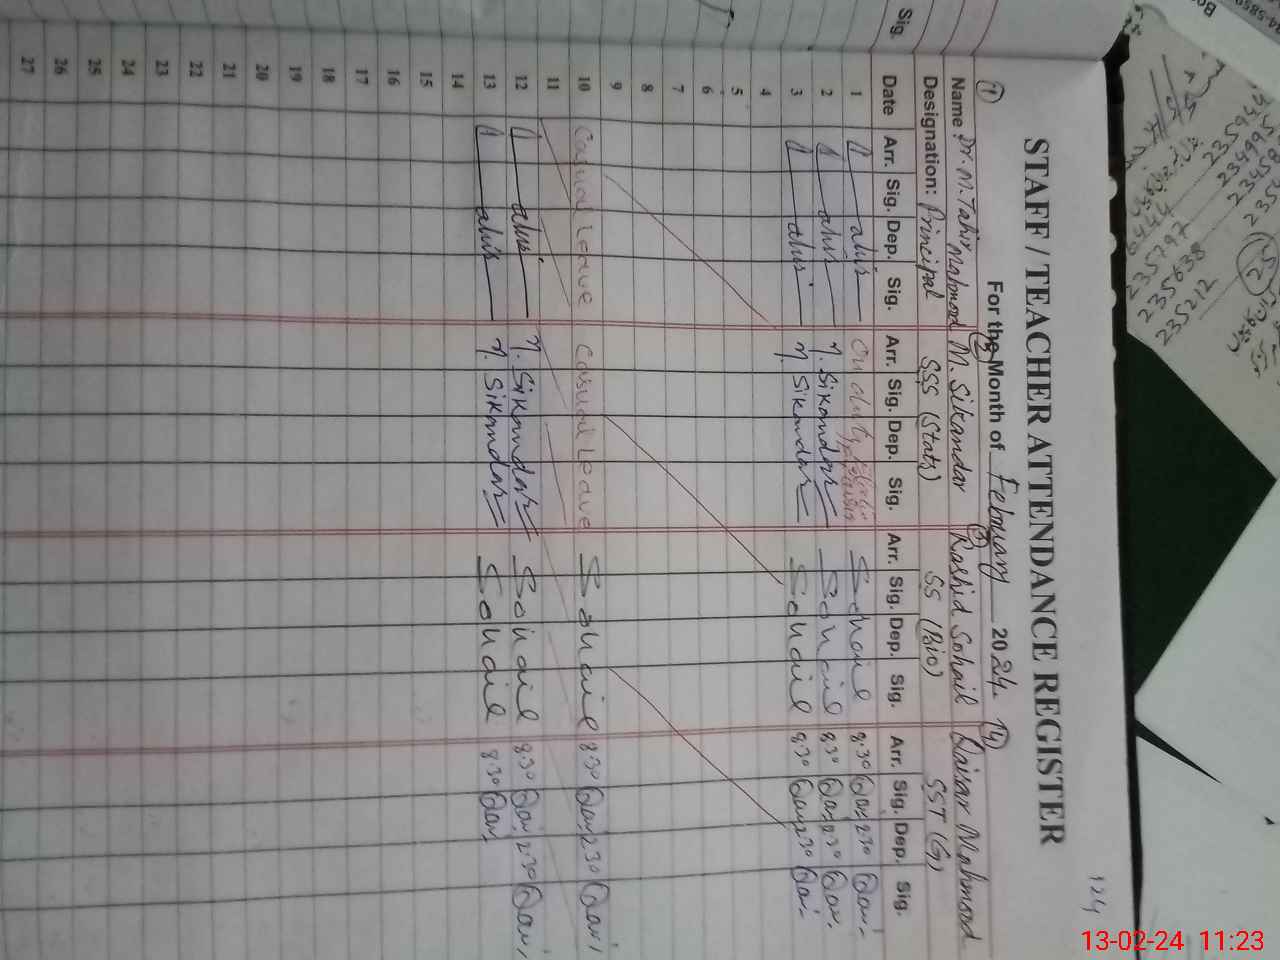 STAFF / TEACHER ATTENDANCE REGISTER
124
For the Month of February 2024
① Name Dr. M. Tahir Mahmood ② M. Sikandar ③ Rashid Sohail ④ Qaisar Mahmood
Designation: Principal SSS (Stats) SS (Bio) SST (G)
Sig.
Date Arr. Sig. Dep. Sig. Arr. Sig. Dep. Sig. Arr. Sig. Dep. Sig. Arr. Sig. Dep. Sig.
1 On duty Sohail 8:30 2:30
2 M. Sikandar Sohail 8:30 2:30
3 M. Sikandar Sohail 8:30 2:30
4
5
6
7
8
9
10 Casual Leave Casual Leave Sohail 8:30 2:30
11
12 M. Sikandar Sohail 8:30 2:30
13 M. Sikandar Sohail 8:30
14
15
16
17
18
19
20
21
22
23
24
25
26
27
235797
235638
235212
13-02-24 11:23